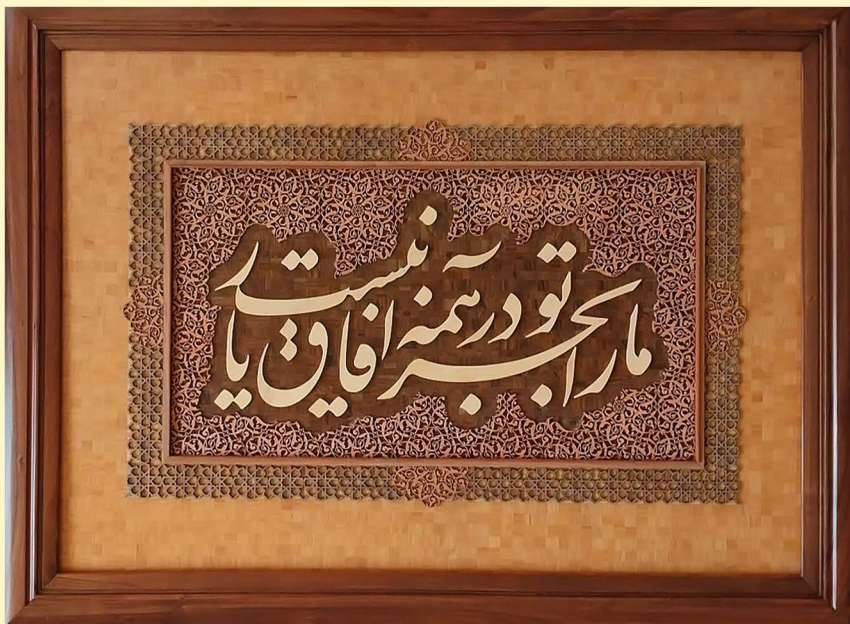 ما را بجز تو در همه آفاق یار نیست